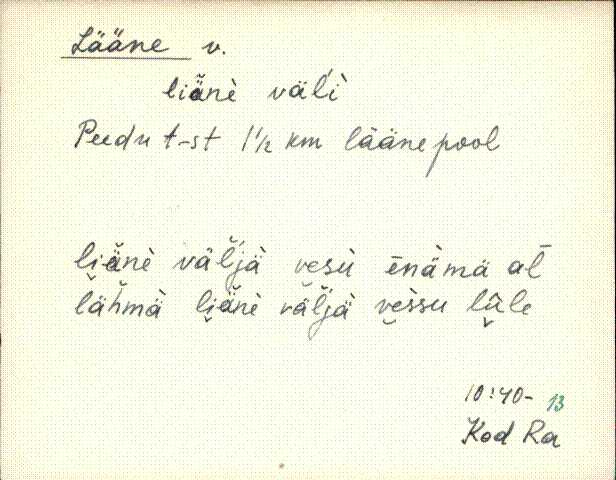 Lääne v.
liäne väl'i
Peedu t-st 1½ km läänepool
liäne väljä vesu enämä al
lähmä liäne väljä vessu lüle
10:40- 13
Kod Ra